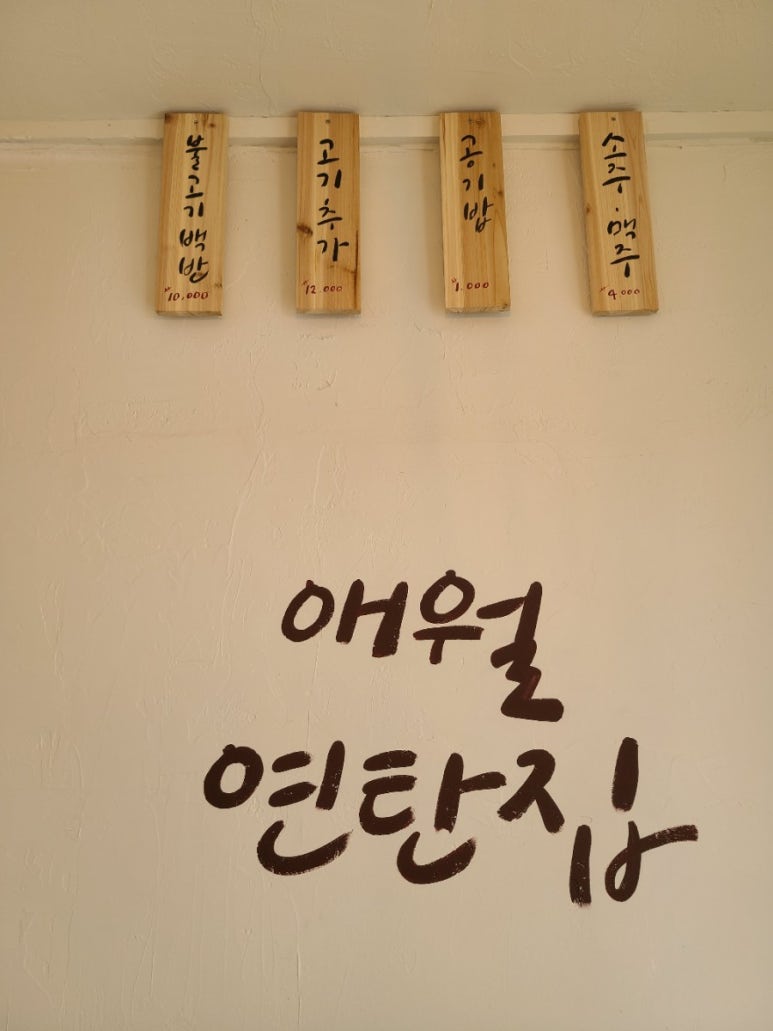 불고기 백반
₩10,000
고기추가
₩12.000
공기밥
₩1.000
소주·맥주
₩4000
애월
연탄집